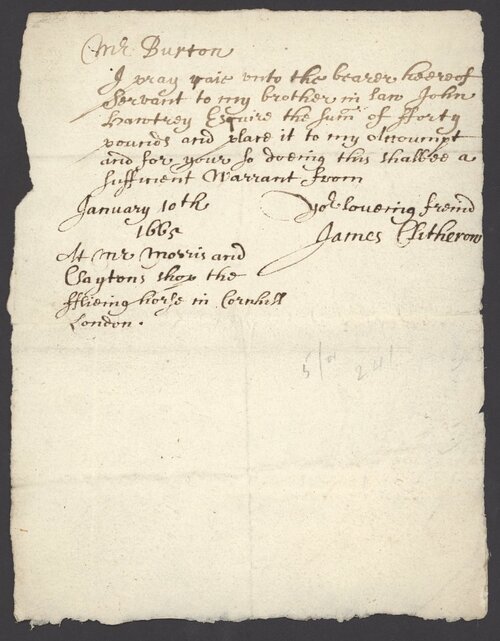 Mr Burton
I pray paie unto the bearer heereof
Servant to my brother in law John
Hawtrey Esquire the sum̄ of fforty
pounds and place it to my Accoumpt
and for your so doeing this shalbe a
sufficient Warrant from
January 10th yor loveing freind
1665 James Clitherow
At Mr Morris and
Claytons shop the
fflieing horse in Cornhill
London.